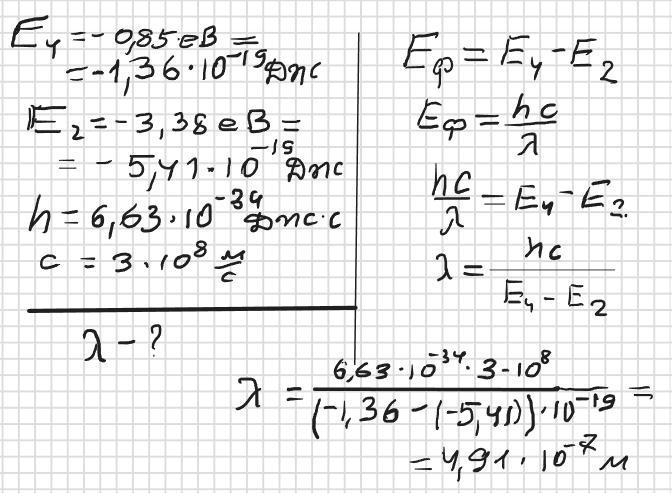 E₄ = - 0,85 еВ =
= -1,36 · 10⁻¹⁹ Дж
E₂ = - 3,38 еВ =
= - 5,41 · 10⁻¹⁹ Дж
h = 6,63 · 10⁻³⁴ Дж · с
c = 3 · 10⁸ м/с
λ - ?
Eф = E₄ - E₂
Eф = hc/λ
hc/λ = E₄ - E₂
λ = hc/(E₄ - E₂)
λ = 6,63 · 10⁻³⁴ · 3 · 10⁸/((-1,36 - (-5,41)) · 10⁻¹⁹) =
= 4,91 · 10⁻⁷ м